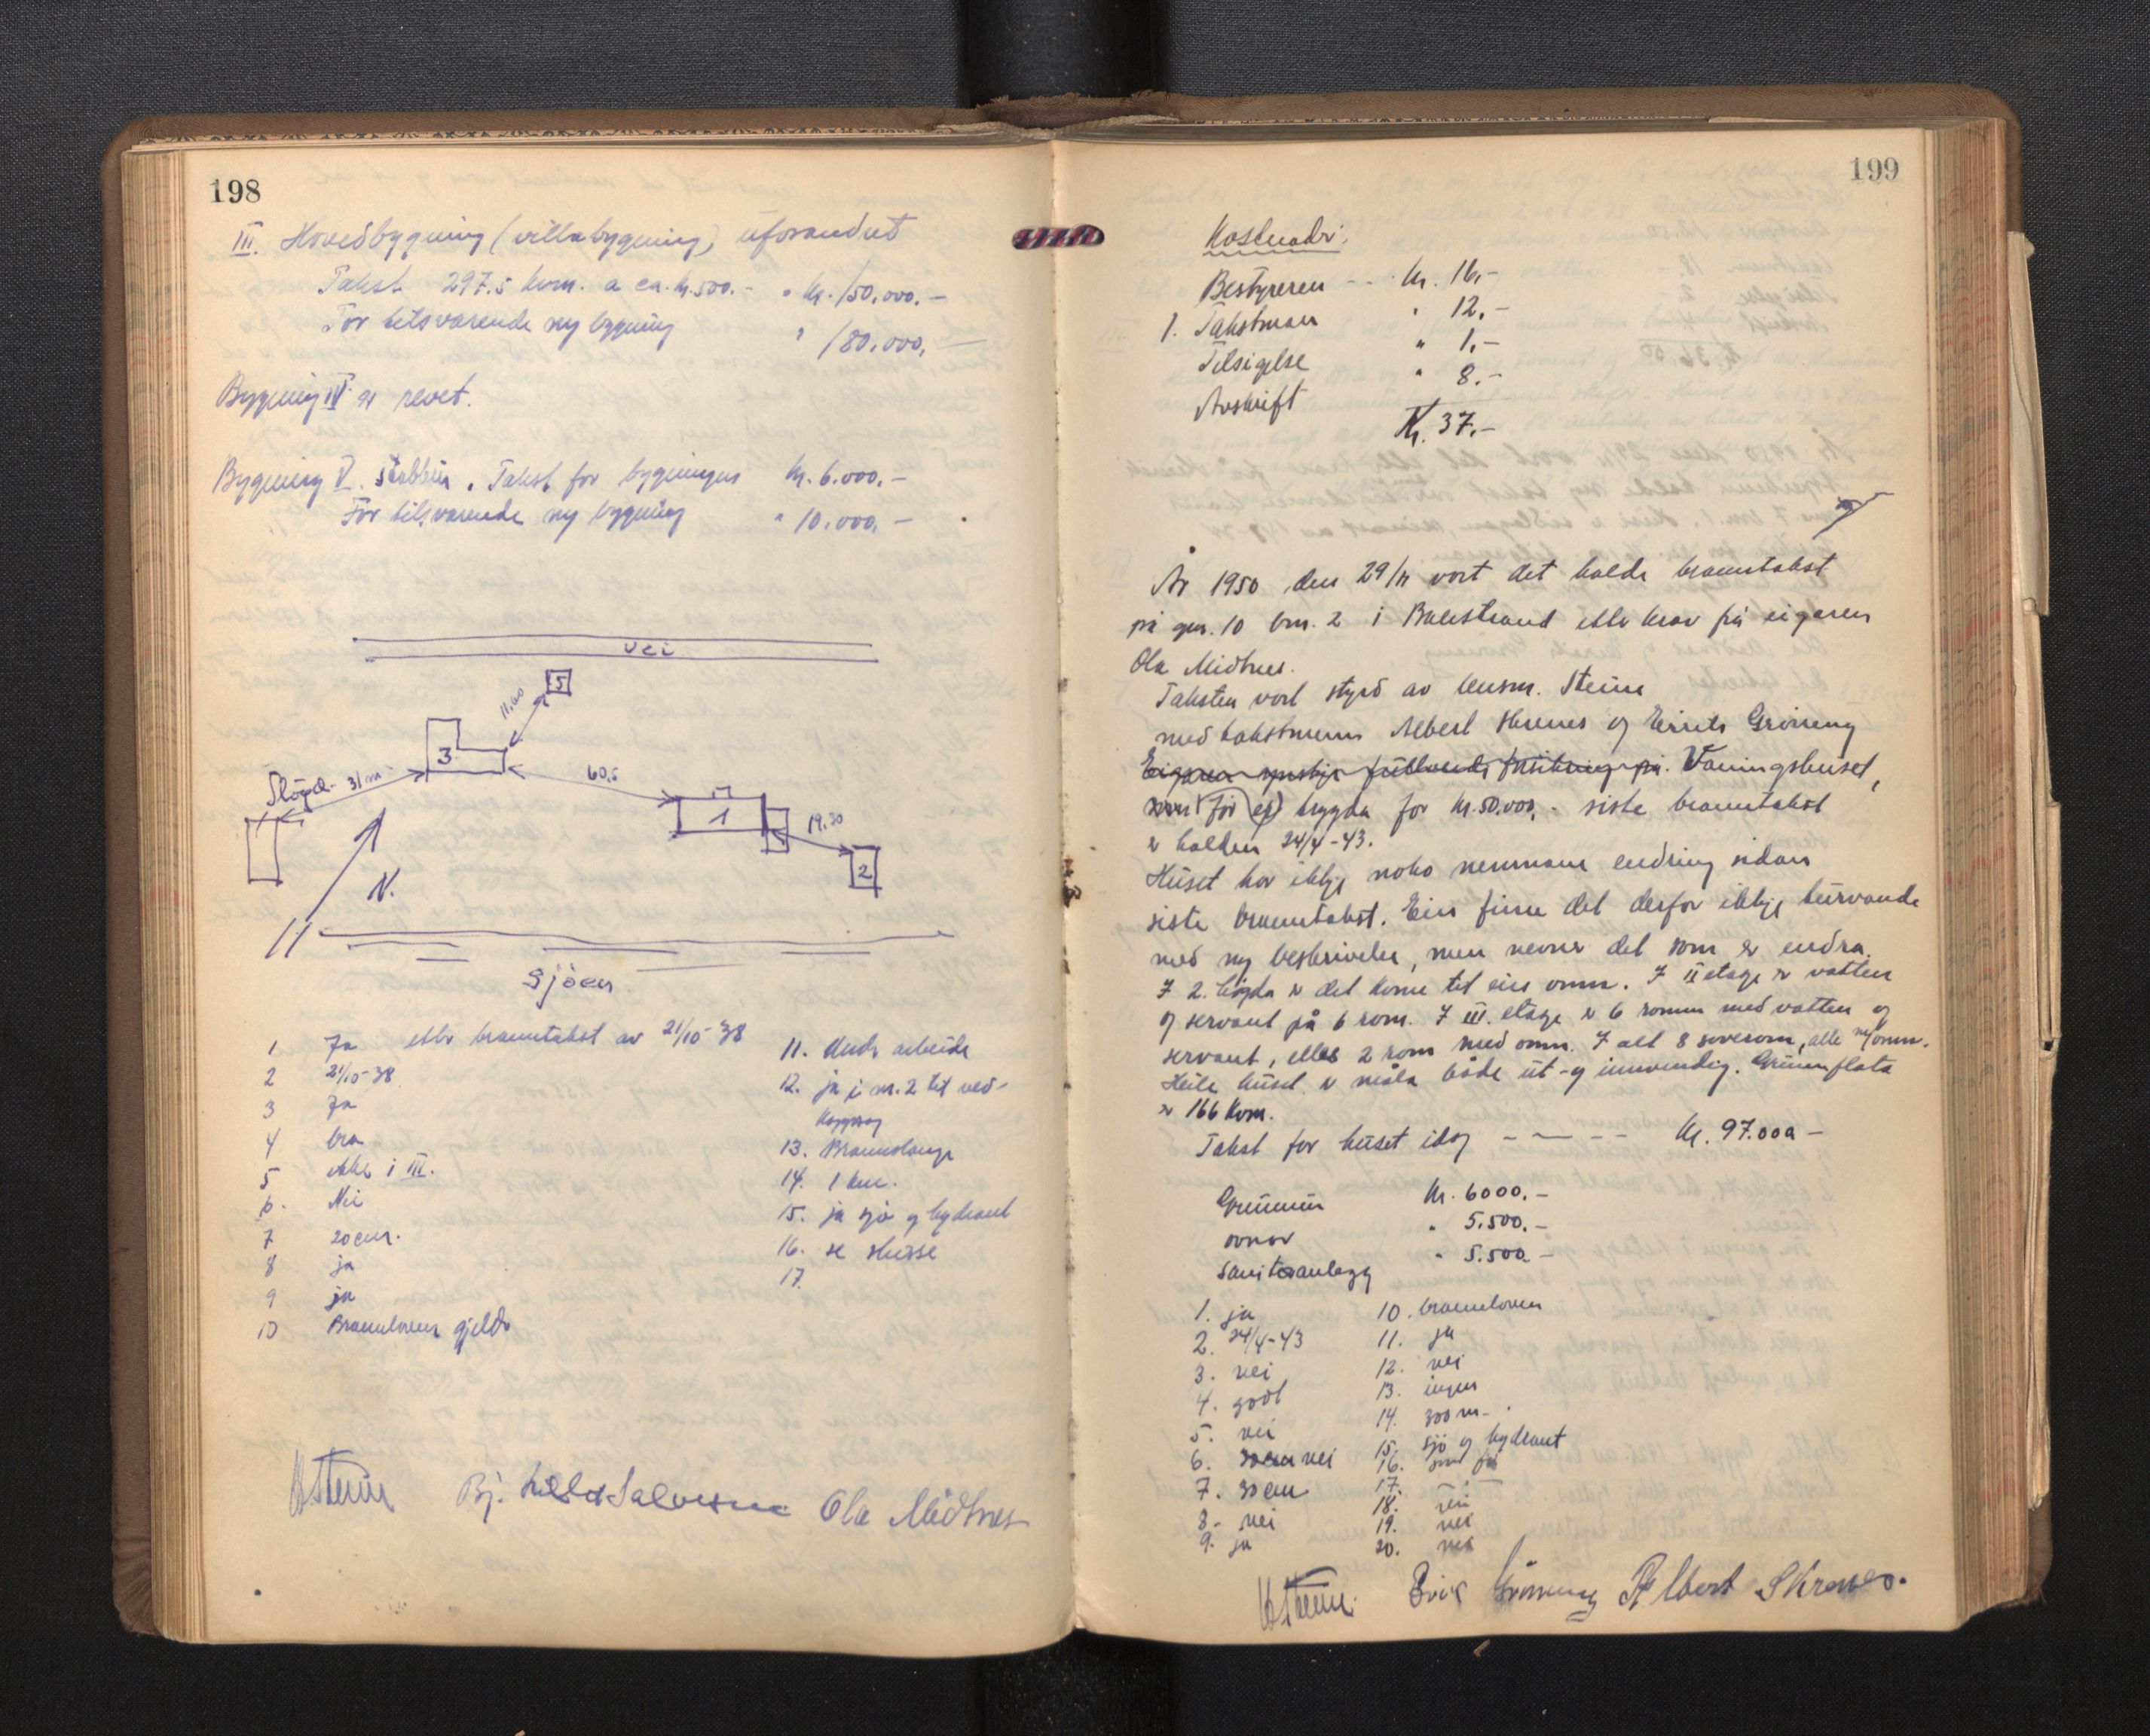 198
III. Hovedbygning (villabygning) uforandret
Takst 297.5 kvm. a ca. kr. 500.- " kr. 150.000.-
For tilsvarende ny bygning " 180.000.-
Bygning IV er revet.
Bygning V. stabbur. Takst for bygningen kr. 6.000.-
For tilsvarende ny bygning " 10.000.-
Vei
5
11,60
3
31 m
60,5
1
19,30
2
N.
Sjöen
1 Ja etter branntakst av 21/10-38
2 21/10-38
3 Ja
4 bra
5 ikke i III.
6. Nei
7 20 cm.
8 ja
9 ja
10 Brannloven gjeld
11. Andr arbeide
12. ja i nr. 2 til ved-
13. Brannslange
14. 1 km.
15. ja sjø og hydrant
16. se skisse
17.
Ola Midtnes
199
Kostnadr:
Bestyreren - - . kr. 16.-
1. Takstmann " 12.-
Tilsigelse " 1.-
Avskrift " 8.-
Kr. 37.-
År 1950 den 29/11 vort det halde branntakst
på gnr. 10 bnr. 2 i Balestrand etter krav frå eigaren
Ola Midtnes.
Taksten vort styrd av lensm. Steine
med takstmenn Albert Skrenes og Eirik Gröneng
Eigaren ynskje forsikring på. Våningshuset,
som för er trygda for kr. 50.000,- siste branntakst
er halden 24/4-43.
Huset har ikkje noko nemnande endring sidan
siste branntakst. Ein finn det derfor ikkje turvande
med ny beskrivelse, men nevner det som er endra.
I 2. högda er det kome til ein omn. I II etage er vatten
og servant på 6 rom. I III. etage er 6 romm med vatten og
servant, elles 2 rom med omn. I alt 8 soverom, alle m/omn.
Heile huset er måla både ut- og innvendig. Grunnflata
er 166 kvm.
Takst for huset idag - - - - kr. 97.000 -
Grunnmur kr. 6000.-
ovnar " 5.500.-
Sanitæranlegg " 5.500 -
1. ja
2. 24/4-43
3. nei
4. godt
5. nei
6. nei
7. 30 cm
8. nei
9. ja
10. brannloven
11. ja
12. nei
13. ingen
14. 300 m.
15. sjö og hydrant
16.
17. -
18. nei
19. nei
20. nei
Eirik Gröneng Albert Skrenes.